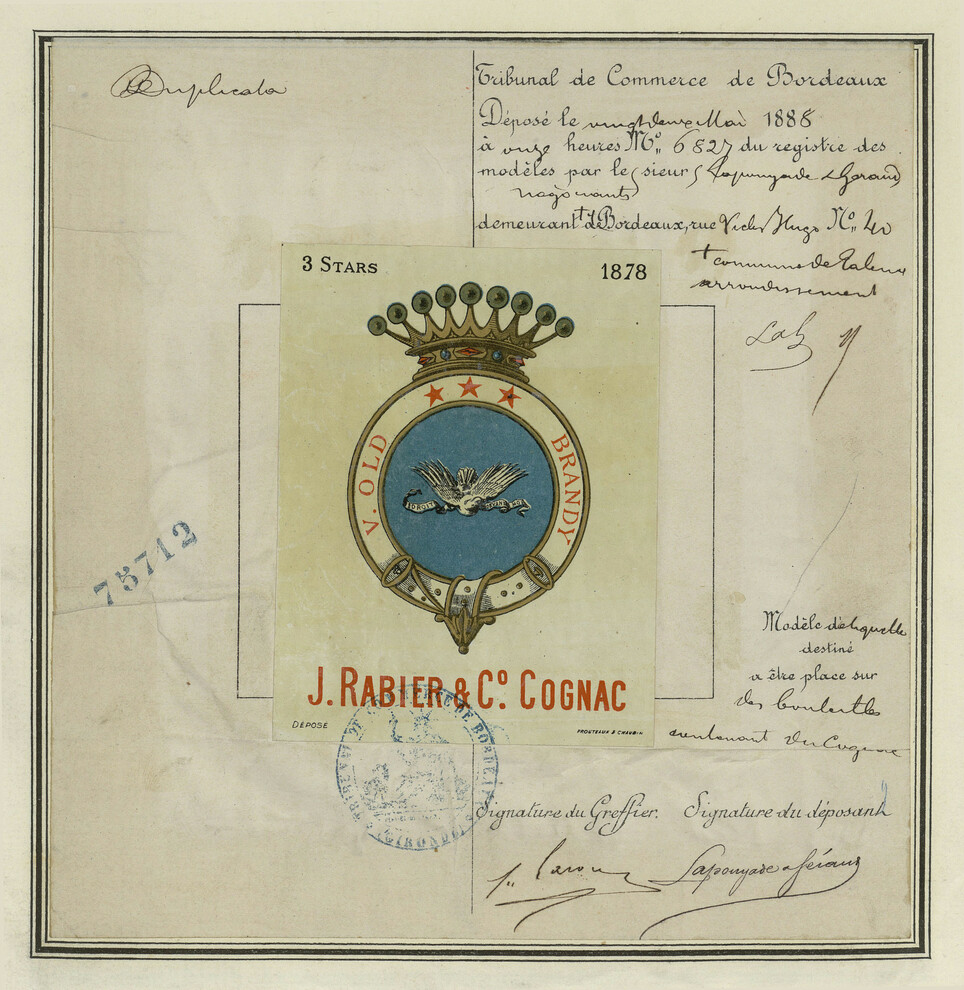 Duplicata
Tribunal de Commerce de Bordeaux
Déposé le vingt deux Mai 1888
à onze heures Nº 6827 du registre des
modèles par le sieur Lapouyade & Géraud
négociants
demeurant à Bordeaux, rue Victor Hugo Nº 40
+ commune de Talence
arrondissement
3 STARS 1878
V. OLD BRANDY
DROIT
J. RABIER & Cº. COGNAC
DÉPOSÉ
PROUTEAUX & CHAUBIN
75712
Modèle d'étiquette
destiné
a être place sur
des bouteilles
contenant du Cognac
TRIBUNAL DE COMMERCE DE BORDEAUX
(GIRONDE)
Signature du Greffier. Signature du déposant
Lapouyade & Géraud